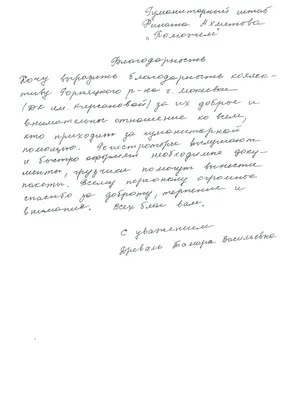 Гуманитарный штаб
Рината Ахметова
"Поможем"
Благодарность
Хочу выразить благодарность коллек-
тиву Горняцкого р-на г. Макеевки
(ДК им. Кирсановой) за их доброе и
внимательны отношение ко всем,
кто приходит за гуманитарной
помощью. Регистраторы выслушают
и быстро оформят необходимые доку-
менты, грузчики помогут вынести
пакеты. Всему персоналу огромное
спасибо за доброту, терпение и
внимание. Всех благ вам.
С уважением
Тамара Васильевна